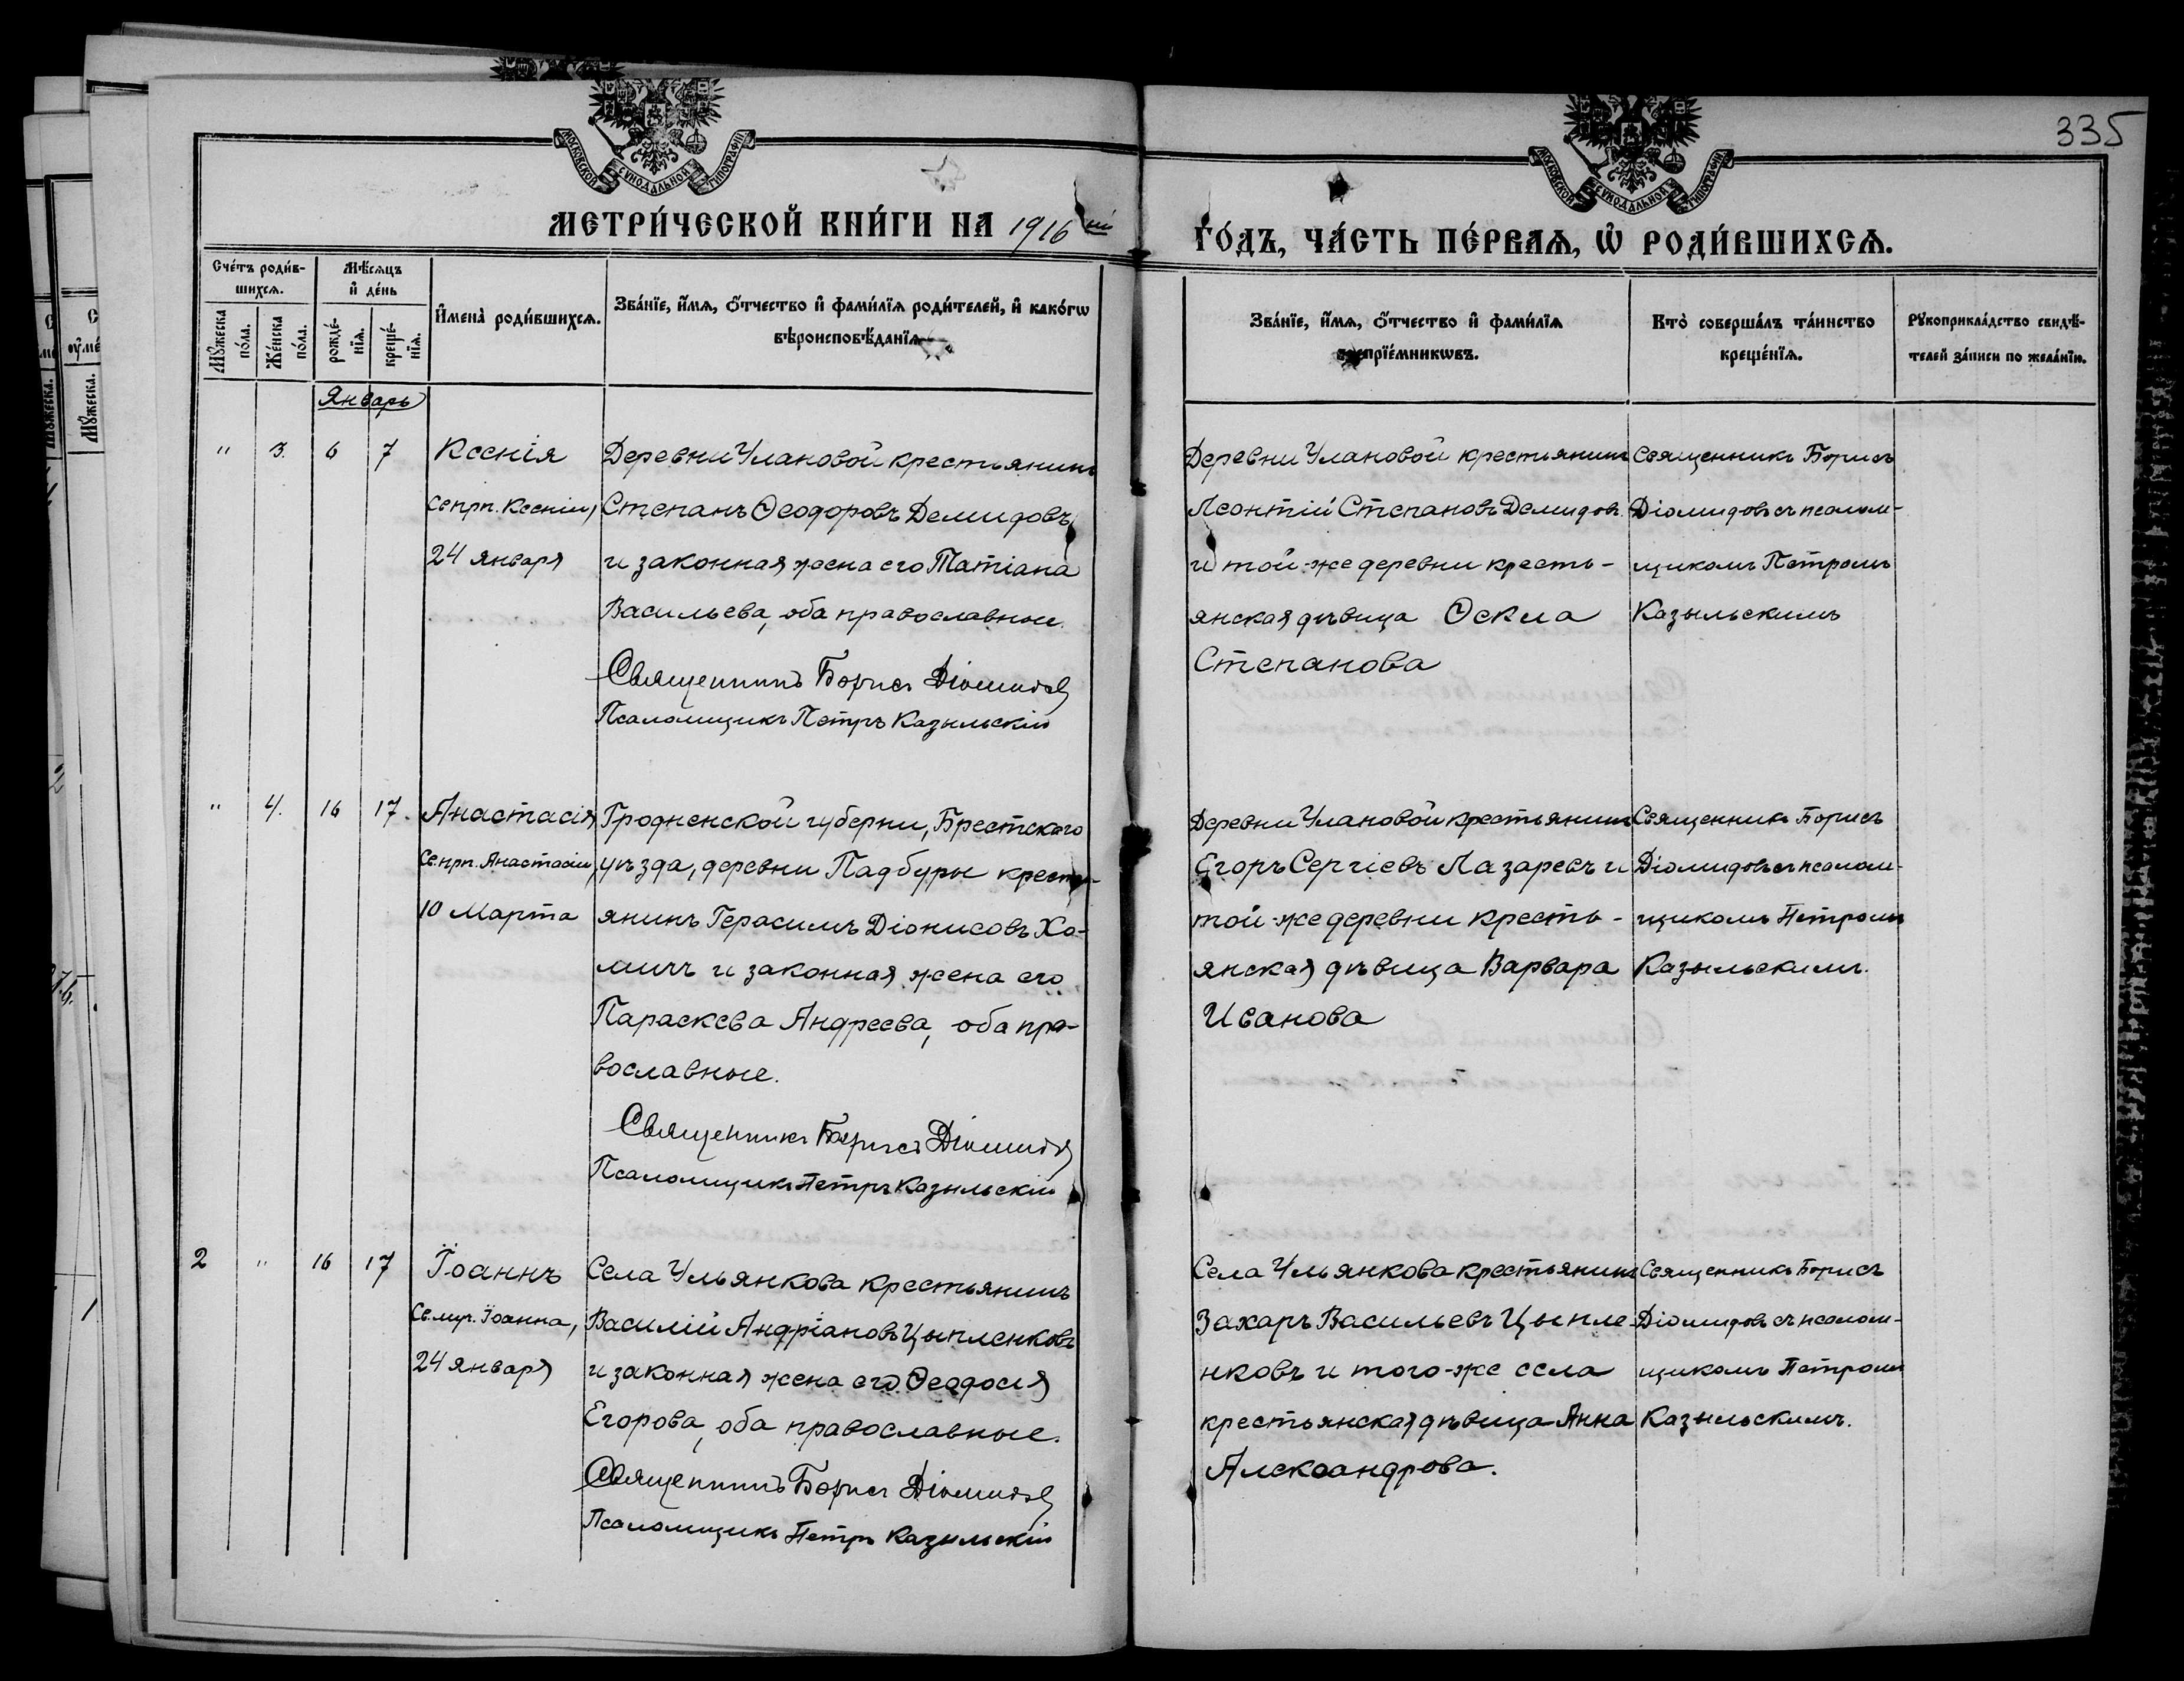 335
МОСКОВСКОЙ СУНОДАЛЬНОЙ ТИПОГРАФІИ
МОСКОВСКОЙ СУНОДАЛЬНОЙ ТИПОГРАФІИ
МЕТРИ́ЧЕСКОЙ КНИ́ГИ НА 1916 ый ГО́ДЪ, ЧА́СТЬ ПЕ́РВАѦ, Ѡ҆ РОДИ́ВШИХСѦ.
Сче́тъ роди́в-
шихсѧ.
Мѣ́сѧцъ
и҆ де́нь
Мꙋ́жеска
по́ла.
Же́нска
по́ла.
рожде́-
нїѧ.
креще́-
нїѧ.
И҆мена̀ роди́вшихсѧ.
Зва́нїе, и҆́мѧ, ѻ҆́тчество и҆ фами́лїѧ роди́телей, и҆ како́гѡ
вѣроисповѣ́данїѧ.
Зва́нїе, и҆́мѧ, ѻ҆́тчество и҆ фами́лїѧ
воспрїе́мникѡвъ.
Кто̀ соверша́лъ та́инство
креще́нїѧ.
Рꙋкоприкла́дство свидѣ́-
телей за́писи по жела́нїю.
Январь
" 3. 6 7
Ксенія
св. прп. Ксеніи,
24 января
Деревни Улановой крестьянинъ
Степанъ Ѳеодоровъ Демидовъ
и законная жена его Татіана
Васильева, оба православные.
Священникъ Борисъ Діомидов
Псаломщикъ Петръ Казыльскій
Деревни Улановой крестьянинъ
Леонтій Степановъ Демидовъ
и той-же деревни кресть-
янская дѣвица Ѳекла
Степанова
Священникъ Борисъ
Діомидовъ съ псалом-
щикомъ Петромъ
Казыльскимъ
" 4. 16 17.
Анастасія
Св. прп. Анастасіи,
10 Марта
Гродненской губерни, Брестскаго
уѣзда, деревни Падбуры кресть-
янинъ Герасимъ Діонисовъ Хо-
мичъ и законная жена его
Параскева Андреева, оба пра-
вославные.
Священникъ Борисъ Діомидов
Псаломщикъ Петръ Казыльскій
Деревни Улановой крестьянинъ
Егоръ Сергіевъ Лазаревъ и
той-же деревни кресть-
янская дѣвица Варвара
Иванова
Священникъ Борисъ
Діомидовъ съ псалом-
щикомъ Петромъ
Казыльскимъ.
2 " 16 17
Іоаннъ
Св. муч. Іоанна,
24 января
Села Ульянкова крестьянинъ
Василій Андріановъ Цыпленковъ
и законная жена его Ѳеодосія
Егорова, оба православные.
Священникъ Борисъ Діомидов
Псаломщикъ Петръ Казыльскій
Села Ульянкова крестьянинъ
Захаръ Васильевъ Цыпле-
нковъ и того-же села
крестьянская дѣвица Анна
Александрова.
Священникъ Борисъ
Діомидовъ съ псалом-
щикомъ Петромъ
Казыльскимъ.